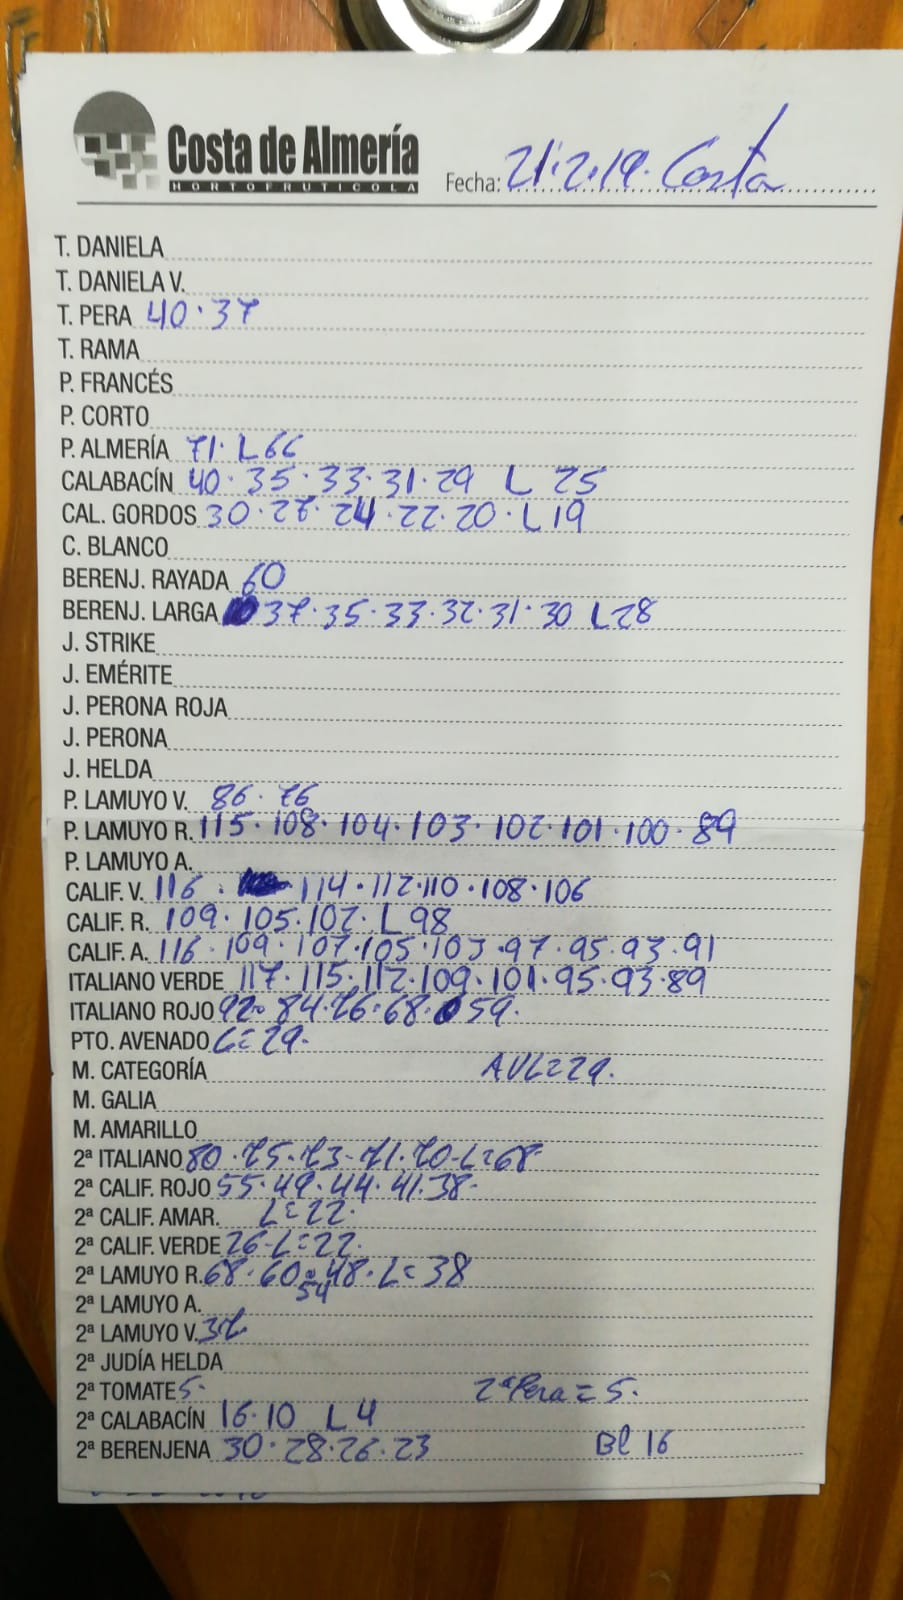 Costa de Almería
HORTOFRUTICOLA
Fecha: 21.2.19. Costa
T. DANIELA
T. DANIELA V.
T. PERA 40.37
T. RAMA
P. FRANCÉS
P. CORTO
P. ALMERÍA 71. L 66
CALABACÍN 40.35.33.31.29 L 25
CAL. GORDOS 30.27.24.22.20.L 19
C. BLANCO
BERENJ. RAYADA 60
BERENJ. LARGA 37.35.33.32.31.30 L 28
J. STRIKE
J. EMÉRITE
J. PERONA ROJA
J. PERONA
J. HELDA
P. LAMUYO V. 86.76
P. LAMUYO R. 115.108.104.103.102.101.100.89
P. LAMUYO A.
CALIF. V. 116. 114.112.110.108.106
CALIF. R. 109.105.102. L 98
CALIF. A. 116.109.107.105.103.97.95.93.91
ITALIANO VERDE 117.115.112.109.101.95.93.89
ITALIANO ROJO 92.84.76.68.59.
PTO. AVENADO L=29.
M. CATEGORÍA AVL=29.
M. GALIA
M. AMARILLO
2ª ITALIANO 80.75.73.71.70.L=68
2ª CALIF. ROJO 55.49.44.41.38.
2ª CALIF. AMAR. L=22.
2ª CALIF. VERDE 26.L=22.
2ª LAMUYO R. 68.60.54.48.L=38
2ª LAMUYO A.
2ª LAMUYO V. 37.
2ª JUDÍA HELDA
2ª TOMATE 5. 2ª Pera=5.
2ª CALABACÍN 16.10 L 4
2ª BERENJENA 30.28.26.23 Bl 16